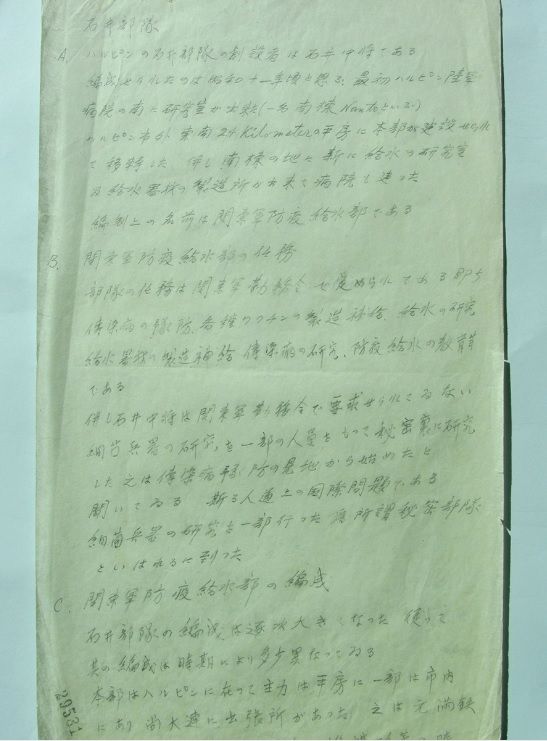 石井部隊
A. ハルピンの石井部隊の創設者は石井中将である
編成せられたのは昭和十一年頃と思る、最初ハルピン陸軍
病院の南に研究室が出来(一名南棟 といふ)
ハルピン市外東南24 Kilometerの平房に本部が建設せられ
て移転した 併し南棟の地に新に給水の研究室
及給水器材の製造所が出来て病院と
編制上の名前は関東軍防疫給水部である
B. 関東軍防疫給水部の任務
部隊の任務は関東軍勤務令で定められてある即ち
伝染病の予防、各種ワクチンの製造補給、給水の研究
給水器材の製造補給 伝染病の研究、防疫給水の教育
である
併し石井中将は関東軍勤務令で要求せられてゐない
細菌兵器の研究を一部の人員をもって秘密裏に研究
した 之は伝染病予防の見地から始めたと
聞いてゐる 斯る人道上の国際問題である
細菌兵器の研究を一部行った為所謂秘密部隊
といはれるに到った
C. 関東軍防疫給水部の編成
石井部隊の編況は逐次大きくなった 従って
其の編成は時期により多少異なってゐる
本部はハルピンに在って主力は平房に一部は市内
にあり 尚大連に出張所があった 之は元満鉄
29531